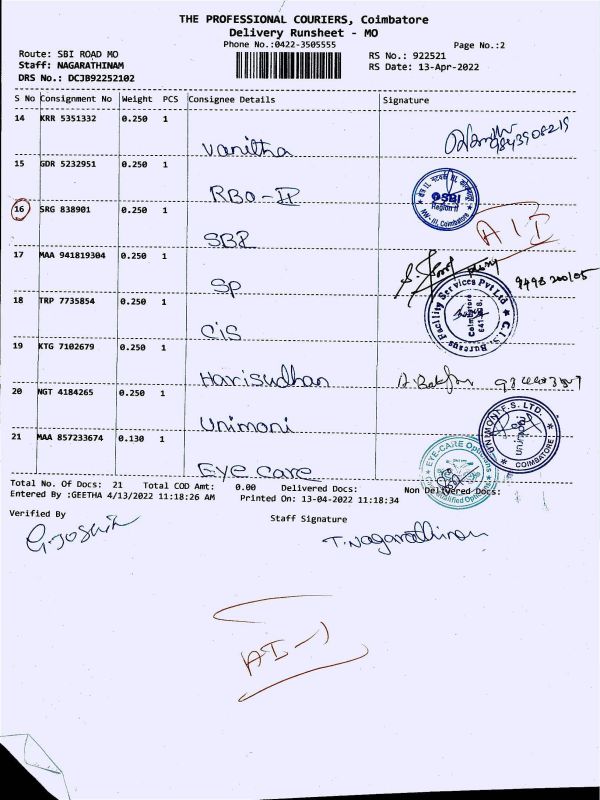 THE PROFESSIONAL COURIERS, Coimbatore
Delivery Runsheet - MO
Phone No.:0422-3505555
Page No.:2
Route: SBI ROAD MO
Staff: NAGARATHINAM
DRS No.: DCJB92252102
RS No.: 922521
RS Date: 13-Apr-2022
S No Consignment No Weight PCS Consignee Details Signature
14 KRR 5351332 0.250 1
Vanitha
15 GDR 5232951 0.250 1
RBO-II
SBI
Region II
16 SRG 838901 0.250 1
SBI
17 MAA 941819304 0.250 1
SP
18 TRP 7735854 0.250 1
CIS
C.I.S. Bureaus Facility Services Pvt Ltd
Coimbatore
19 KTG 7102679 0.250 1
Harisudhan
20 NGT 4184265 0.250 1
Unimoni
UNIMONI F.S. LTD.
COIMBATORE
21 MAA 857233674 0.130 1
Eye care
EYE-CARE Opticians
Total No. Of Docs: 21 Total COD Amt: 0.00 Delivered Docs: Non Delivered Docs:
Entered By :GEETHA 4/13/2022 11:18:26 AM Printed On: 13-04-2022 11:18:34
Verified By
Staff Signature
G.Joshi
T.Nagarathinam